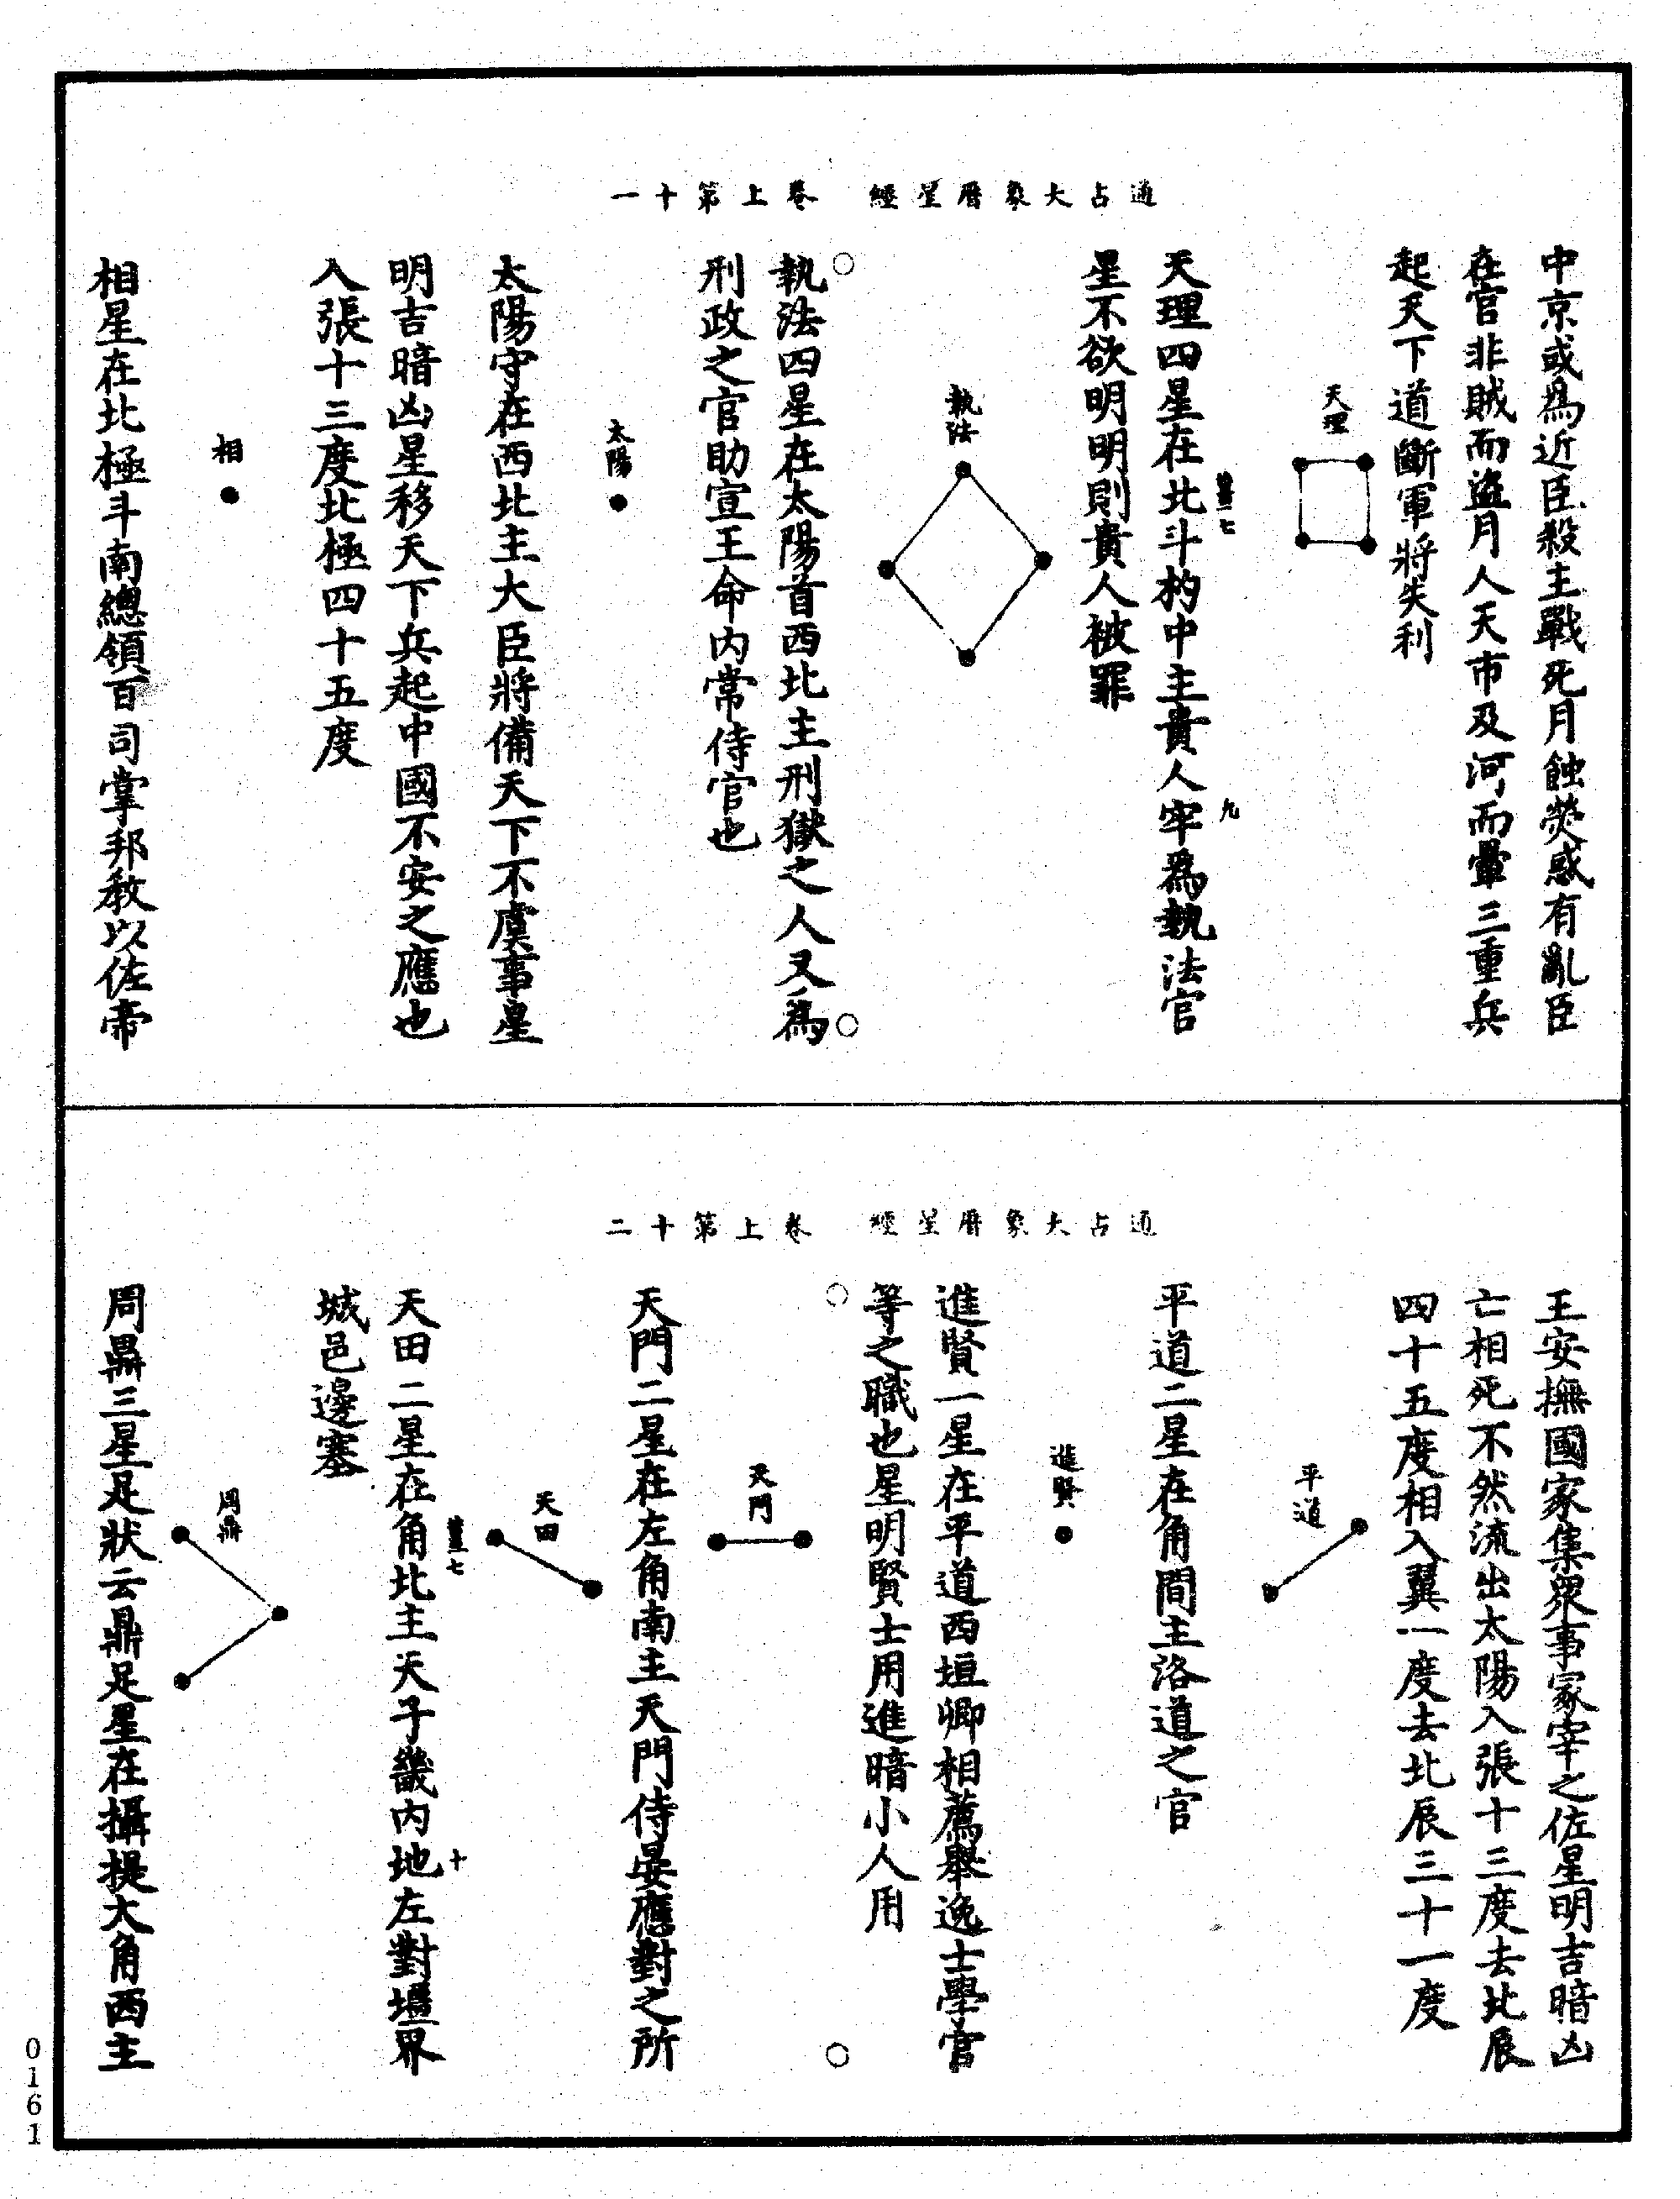 通占大象曆星經　卷上第十一
中京或為近臣殺主戰死月蝕熒惑有亂臣
在官非賊而盜月人天市及河而暈三重兵
起天下道斷軍將失利
天理
薑七
九
天理四星在北斗杓中主貴人牢為執法官
星不欲明明則貴人被罪
執法
執法四星在太陽首西北主刑獄之人又為
刑政之官助宣王命內常侍官也
太陽
太陽守在西北主大臣將備天下不虞事星
明吉暗凶星移天下兵起中國不安之應也
入張十三度北極四十五度
相
相星在北極斗南總領百司掌邦教以佐帝
通占大象曆星經　卷上第十二
王安撫國家集眾事冢宰之佐星明吉暗凶
亡相死不然流出太陽入張十三度去北辰
四十五度相入翼一度去北辰三十一度
平道
平道二星在角間主洛道之官
進賢
進賢一星在平道西垣卿相薦舉逸士學官
等之職也星明賢士用進暗小人用
天門
天門二星在左角南主天門侍晏應對之所
天田
薑七
十
天田二星在角北主天子畿內地左對壃界
城邑邊塞
周鼎
周鼎三星足狀云鼎足星在攝提大角西主
0161